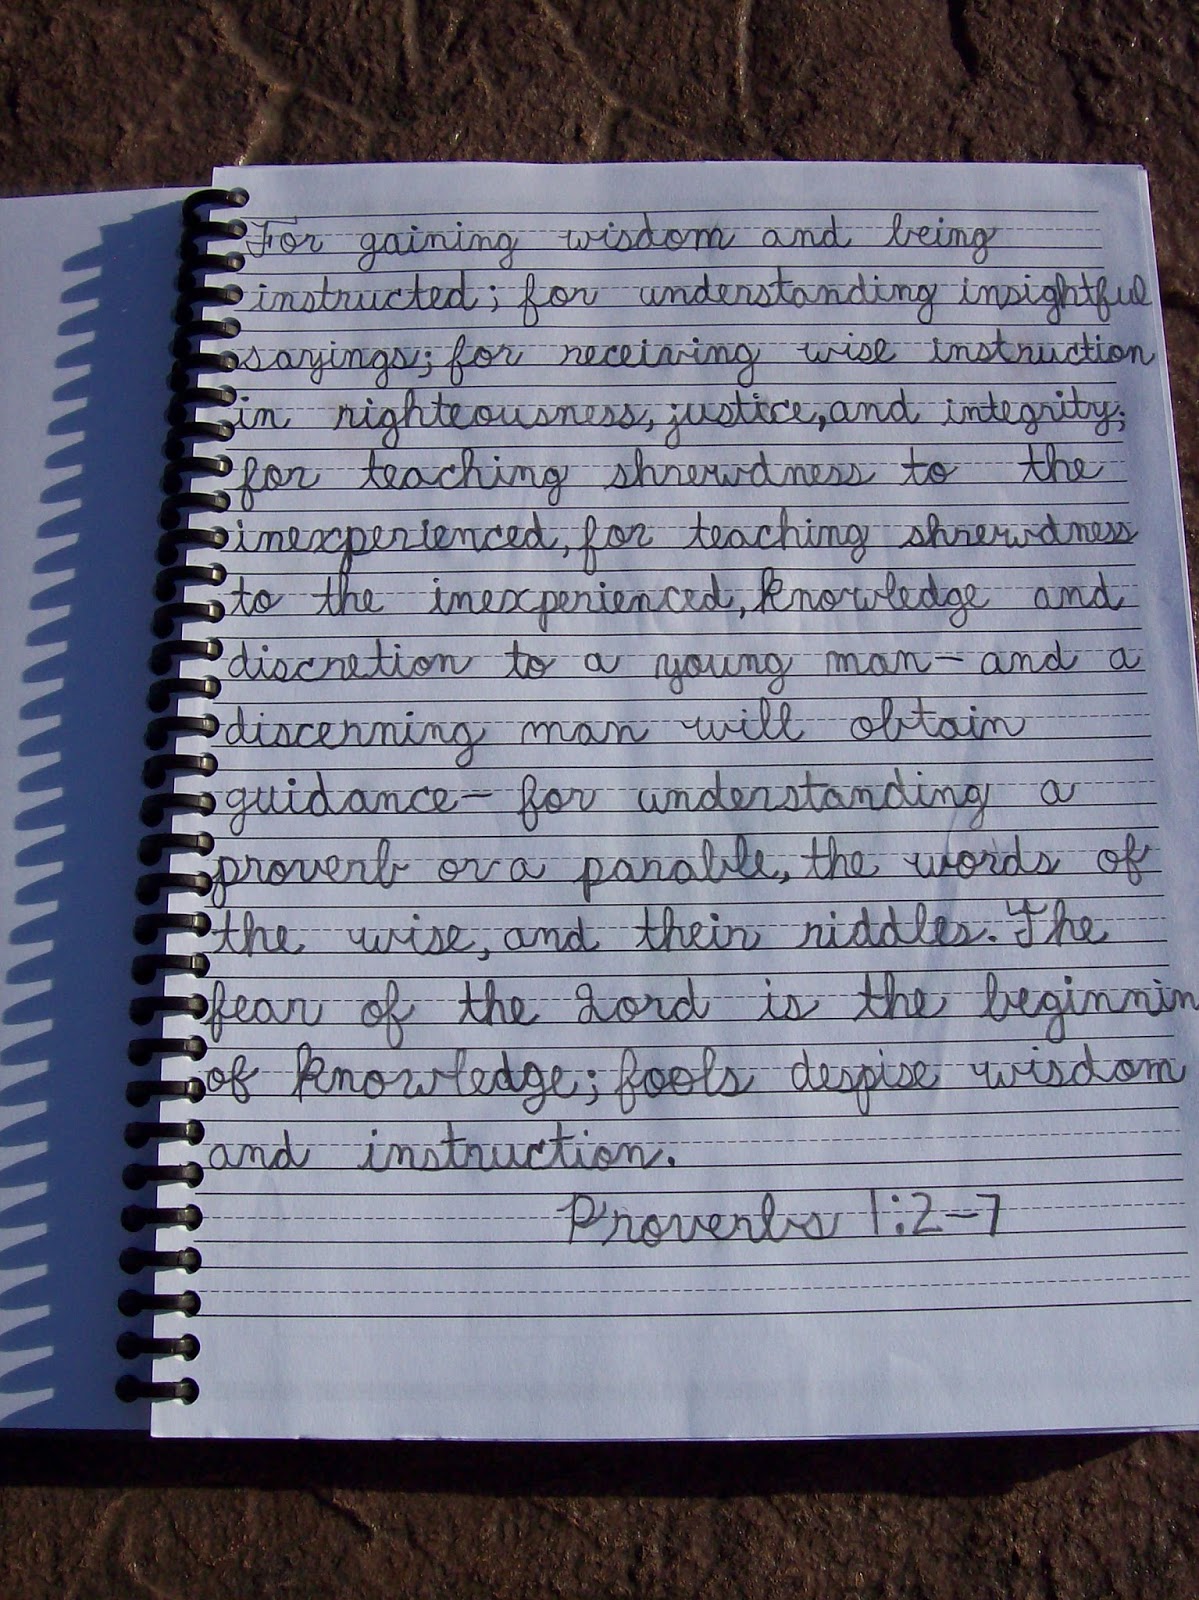 For gaining wisdom and being
instructed; for understanding insightful
sayings; for receiving wise instruction
in righteousness, justice, and integrity;
for teaching shrewdness to the
inexperienced, for teaching shrewdness
to the inexperienced, knowledge and
discretion to a young man- and a
discerning man will obtain
guidance- for understanding a
proverb or a parable, the words of
the wise, and their riddles. The
fear of the Lord is the beginnin
of knowledge; fools despise wisdom
and instruction.
Proverbs 1:2-7